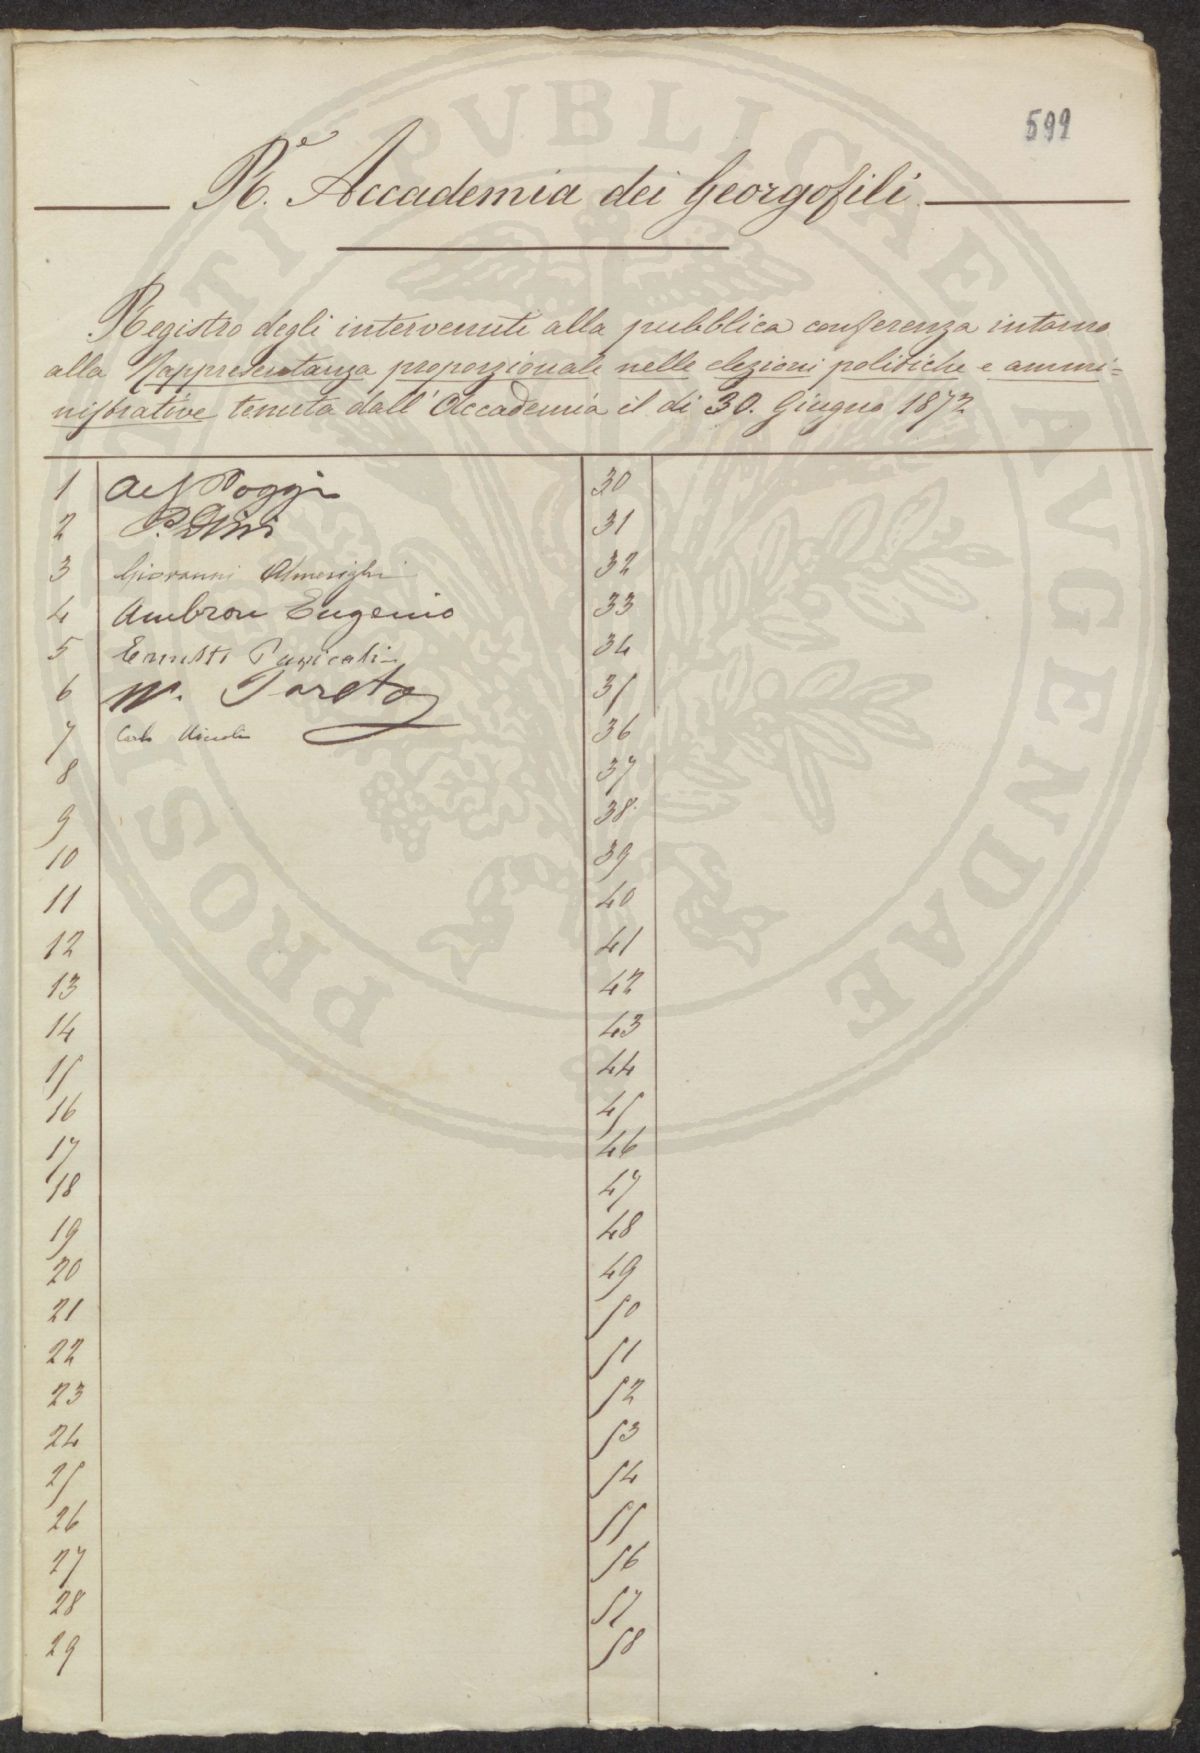 599
R.e Accademia dei Georgofili
Registro degli intervenuti alla pubblica conferenza intorno
alla Rappresentanza proporzionale nelle elezioni politiche e ammi=
nistrative tenuta dall' Accademia il di 30. Giugno 1872
1 Poggi 30
2 31
3 Giovanni 32
4 Ambron Eugenio 33
5 34
6 Pareto 35
7 Carlo 36
8 37
9 38
10 39
11 40
12 41
13 42
14 43
15 44
16 45
17 46
18 47
19 48
20 49
21 50
22 51
23 52
24 53
25 54
26 55
27 56
28 57
29 58
PROSPERITATI PVBLICAE AVGENDAE